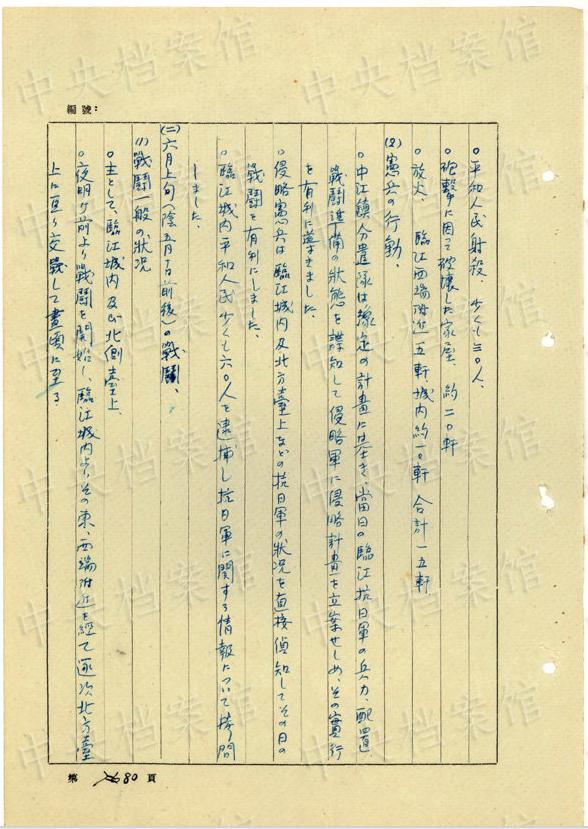 編號：
○平和人民射殺、少くも三〇人、
○砲撃に因って破壊した家屋、約二〇軒
○放火、臨江西端附近五軒城内約一〇軒 合計一五軒
(2)憲兵の行動、
○中江鎮分遣隊は豫定の計畫に基き、當日の臨江抗日軍の兵力、配置、
戰鬪準備の狀態を諜知して侵略軍に侵略計畫を立案せしめ、その實行
を有利に導きました。
○侵略憲兵は臨江城内及北方臺上などの抗日軍の狀況を直接偵知してその日の
戰鬪を有利にしました。
○臨江城内平和人民少くも六〇人を逮捕し抗日軍に関する情報について拷問
しました。
(二)六月上旬(陰五月 前後)の戰鬪、
(1)戰鬪一般の狀況
○主として、臨江城内及び北側臺上、
○夜明け前より戰鬪を開始し、臨江城内よりその東、西端附近を經て逐次北方臺
上に亘り交戰して晝頃に至る。
第 80 頁
中央档案馆